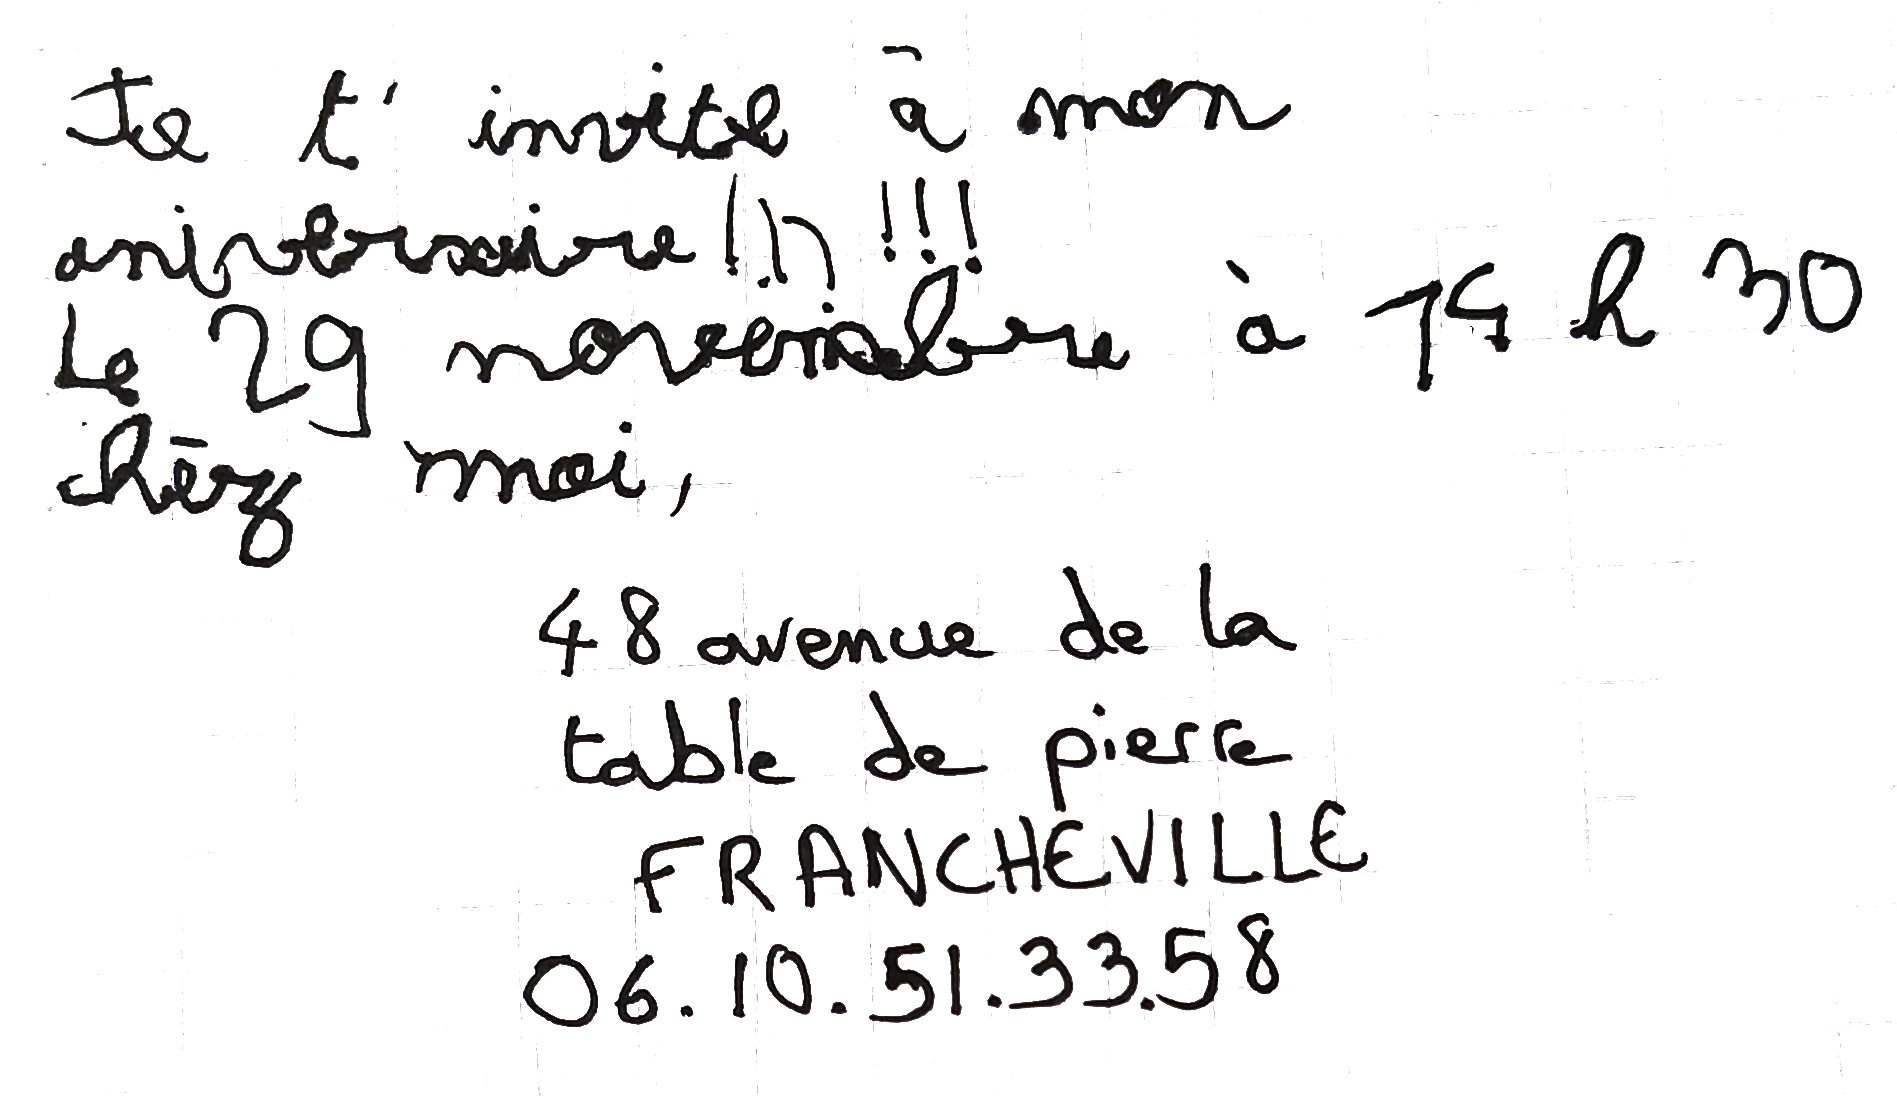 Je t'invite à mon
aniversaire !!! !!!
Le 29 novembre à 14 h 30
chēz moi,
48 avenue de la
table de pierre
FRANCHEVILLE
06.10.51.33.58